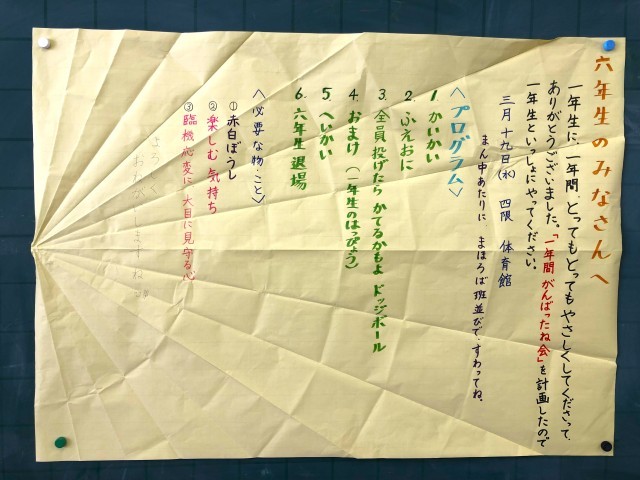 六年生のみなさんへ
一年生に、一年間、とってもとってもやさしくしてくださって、
ありがとうございました。「一年間がんばったね会」を計画したので
一年生といっしょにやってください。
三月十九日(水) 四限 体育館
まん中あたりに、まほろば班並びで、すわってね。
〈プログラム〉
1. かいかい
2. ふえおに
3. 全員投げたらかてるかもよドッジボール
4. おまけ(一年生のはっぴょう)
5. へいかい
6. 六年生退場
〈必要な物・こと〉
①赤白ぼうし
②楽しむ気持ち
③臨機応変に大目に見守る心
よろしく
おねがいしますね